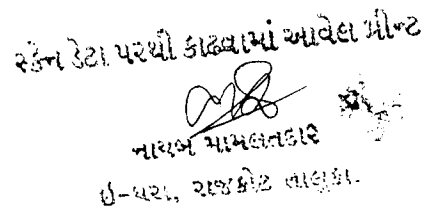 સ્કેન ડેટા પરથી કાઢવામાં આવેલ પ્રીન્ટ
નાયબ મામલતદાર
ઇ-ધરા, રાજકોટ તાલુકા.